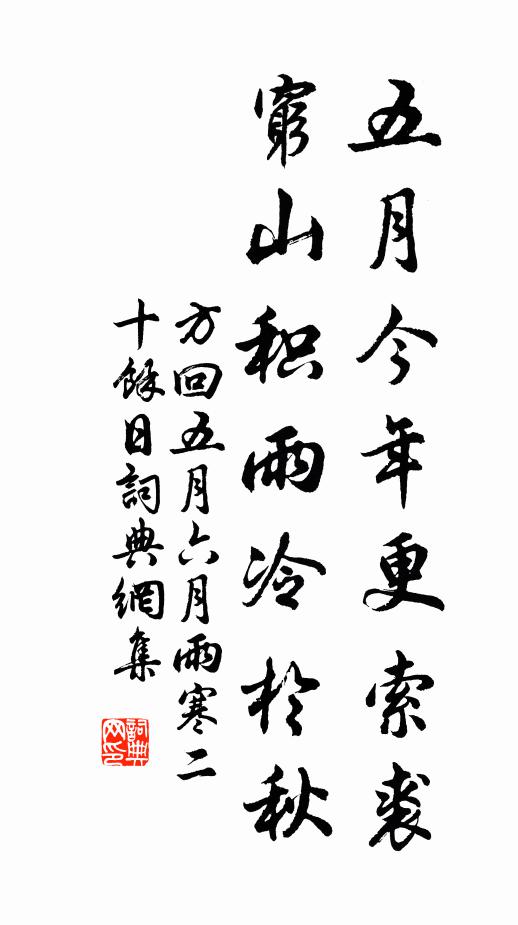 五月今年更索裘
窮山积雨冷於秋
方回五月六月雨寒二
十餘日詞典網集
詞典网印